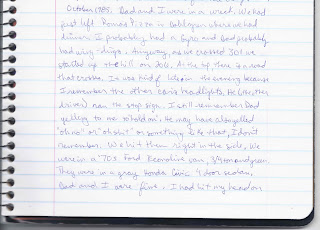 October 1985. Dad and I were in a wreck. We had
just left Roma's Pizza in Gableson where we had
dinner. I probably had a Gyro and Dad probably
had wing-dings. Anyway, as we crossed 301 we
started up the hill on 206. At the top, there is a road
that crosses. It was kind of late in the evening because
I remember the other car's headlights. He (the other
driver) ran the stop sign. I still remember Dad
yelling to me to hold on. He may have also yelled
"oh no" or "oh shit" or something like that, I don't
remember. We hit them right in the side. We
were in a '70s Ford Econoline van, 3/4 ton and green.
They were in a gray Honda Civic 4 door sedan.
Dad and I were fine. I had hit my head on